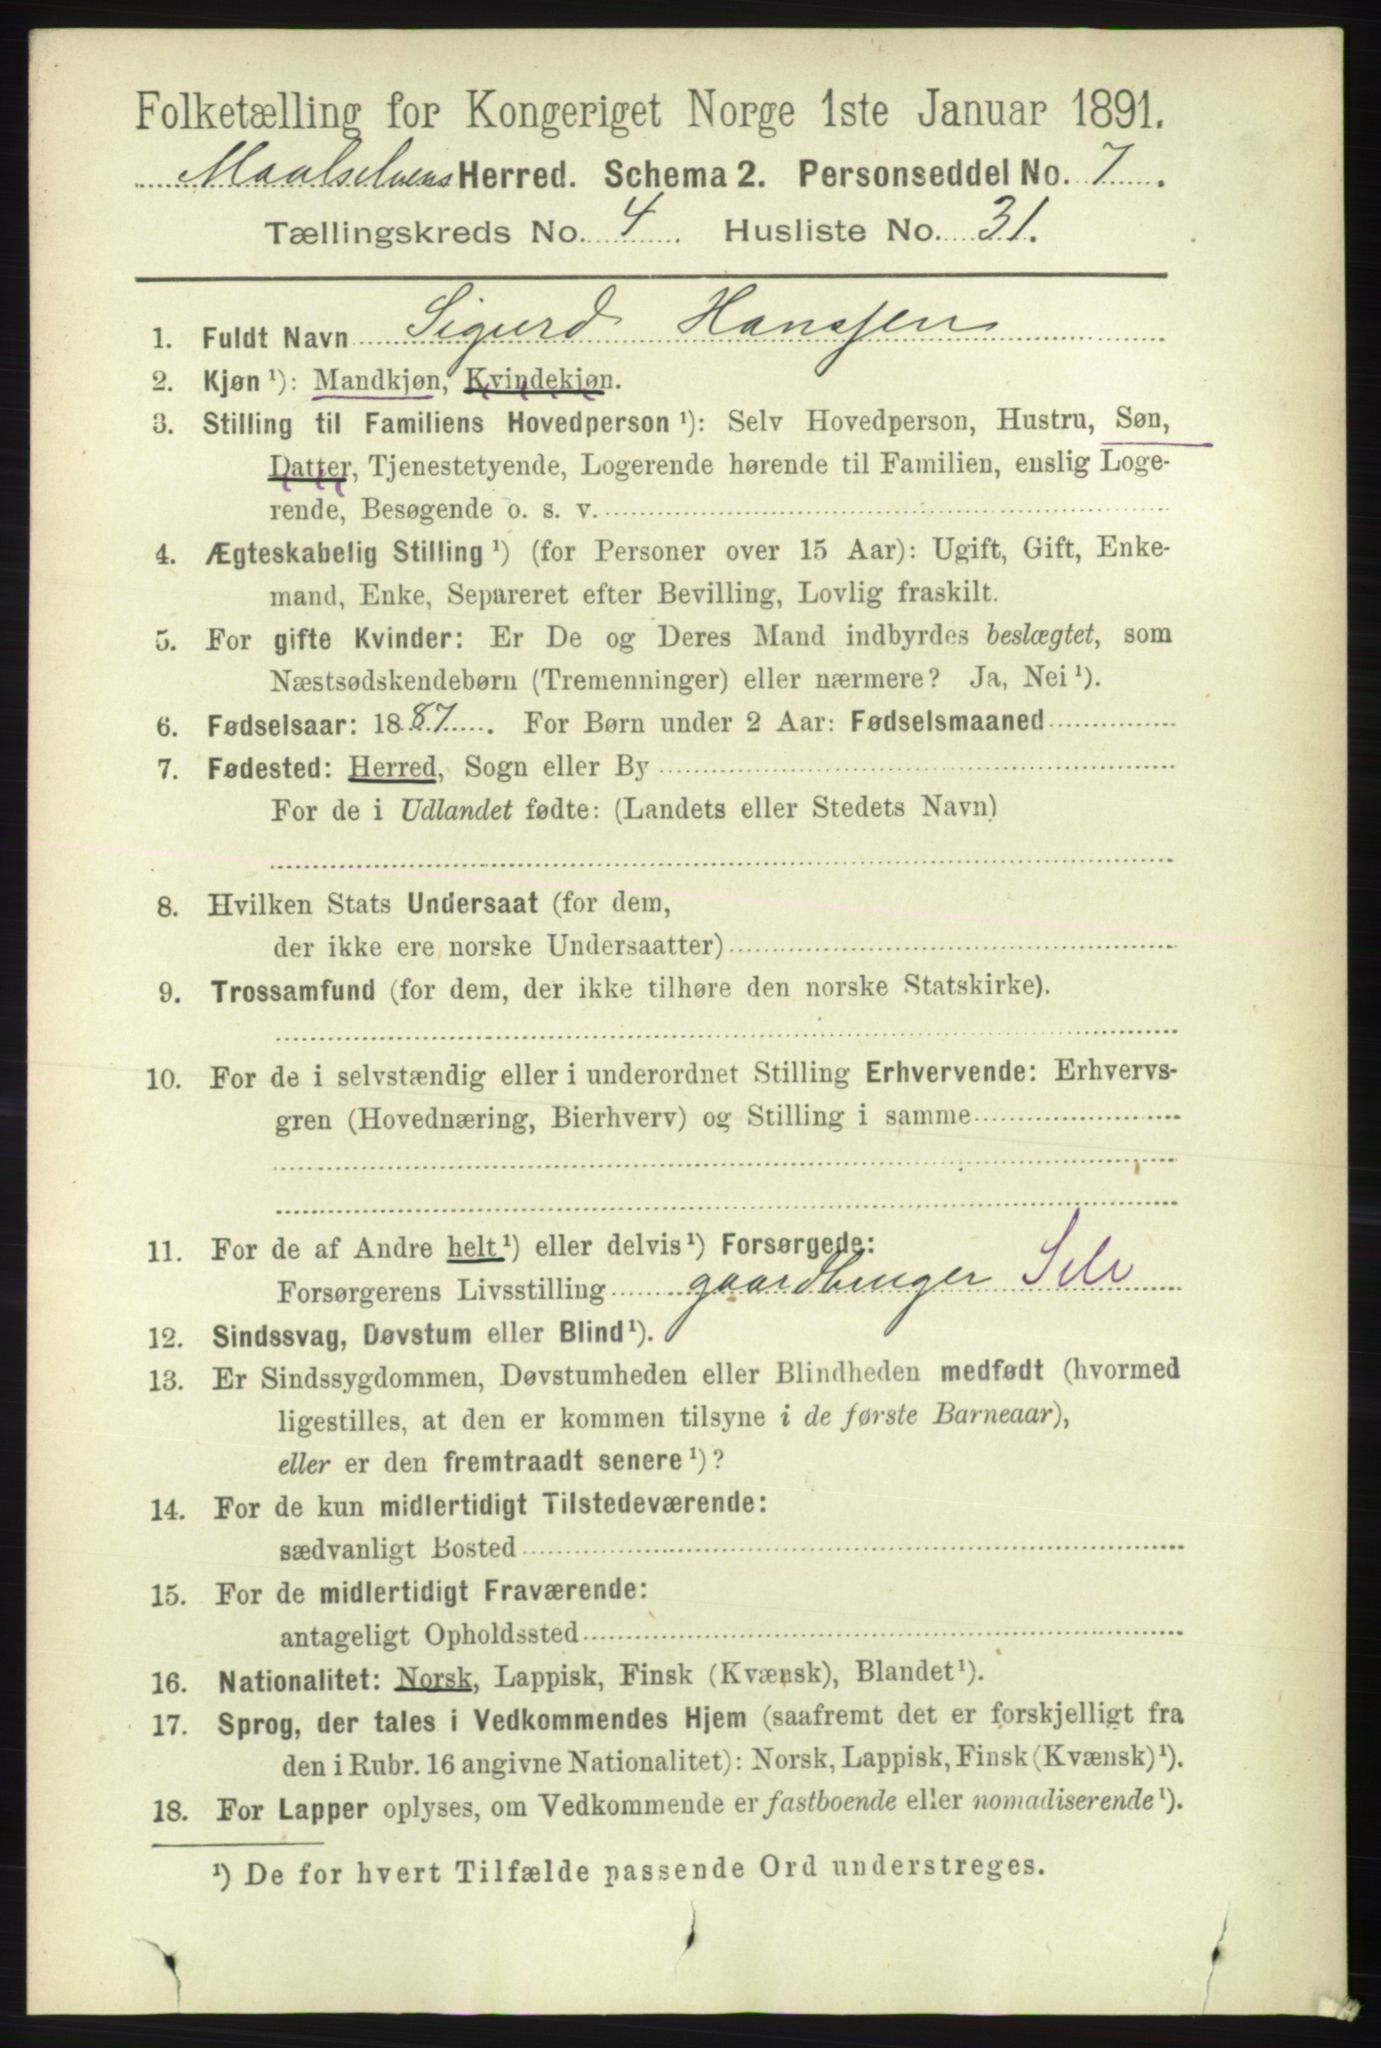 Folketælling for Kongeriget Norge 1ste Januar 1891.
Maalselvens Herred. Schema 2. Personseddel No. 7.
Tællingskreds No. 4 Husliste No. 31.
1. Fuldt Navn Sigurd Hanssen
2. Kjøn ¹): Mandkjøn, Kvindekjøn.
3. Stilling til Familiens Hovedperson ¹): Selv Hovedperson, Hustru, Søn,
Datter, Tjenestetyende, Logerende hørende til Familien, enslig Loge-
rende, Besøgende o. s. v.
4. Ægteskabelig Stilling ¹) (for Personer over 15 Aar): Ugift, Gift, Enke-
mand, Enke, Separeret efter Bevilling, Lovlig fraskilt.
5. For gifte Kvinder: Er De og Deres Mand indbyrdes beslægtet, som
Næstsødskendebørn (Tremenninger) eller nærmere? Ja, Nei ¹).
6. Fødselsaar: 1887. For Børn under 2 Aar: Fødselsmaaned
7. Fødested: Herred, Sogn eller By
For de i Udlandet fødte: (Landets eller Stedets Navn)
8. Hvilken Stats Undersaat (for dem,
der ikke ere norske Undersaatter)
9. Trossamfund (for dem, der ikke tilhøre den norske Statskirke).
10. For de i selvstændig eller i underordnet Stilling Erhvervende: Erhvervs-
gren (Hovednæring, Bierhverv) og Stilling i samme
11. For de af Andre helt ¹) eller delvis ¹) Forsørgede:
Forsørgerens Livsstilling gaardbruger Selv
12. Sindssvag, Døvstum eller Blind ¹).
13. Er Sindssygdommen, Døvstumheden eller Blindheden medfødt (hvormed
ligestilles, at den er kommen tilsyne i de første Barneaar),
eller er den fremtraadt senere ¹)?
14. For de kun midlertidigt Tilstedeværende:
sædvanligt Bosted
15. For de midlertidigt Fraværende:
antageligt Opholdssted
16. Nationalitet: Norsk, Lappisk, Finsk (Kvænsk), Blandet ¹).
17. Sprog, der tales i Vedkommendes Hjem (saafremt det er forskjelligt fra
den i Rubr. 16 angivne Nationalitet): Norsk, Lappisk, Finsk (Kvænsk) ¹).
18. For Lapper oplyses, om Vedkommende er fastboende eller nomadiserende ¹).
¹) De for hvert Tilfælde passende Ord understreges.